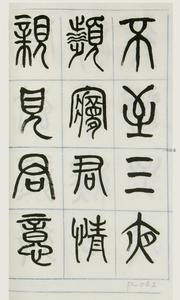 不至三夜
頻夢君情
親見君意